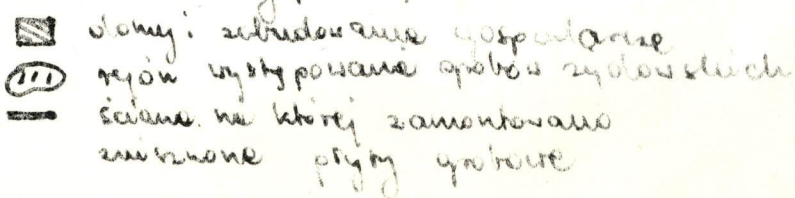 domy i zabudowania gospodarcze
rejon występowania grobów żydowskich
ściana na której zamontowano
zniszczone płyty grobowe